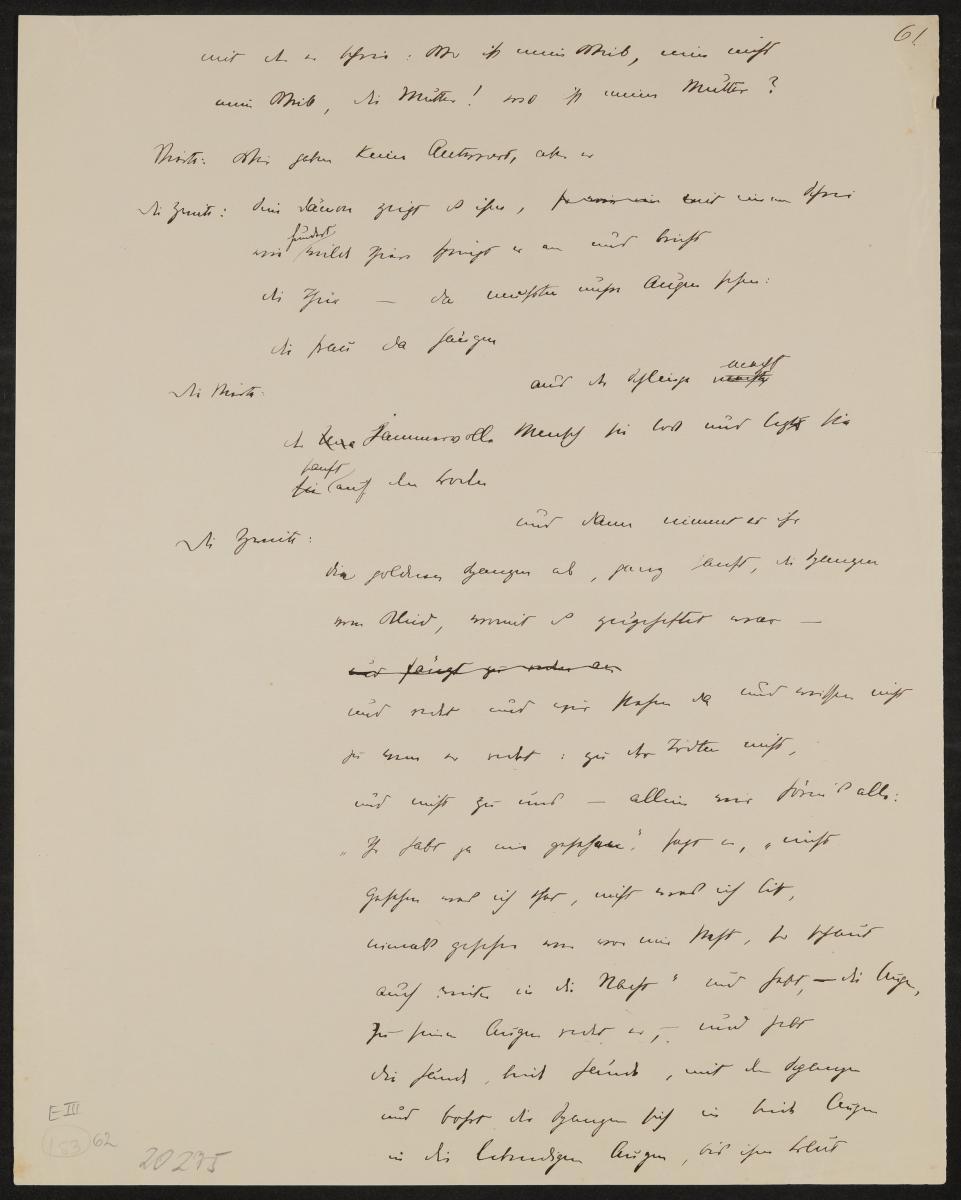 61
mit der er schrie: Wo ist mein Weib, nein nicht
mein Weib, die Mutter! wo ist meine Mutter?
Wir geben keine Antwort, aber er
Die Zweite: sein Dämon zeigt es ihm, mit einem Schrei
wie hundert wilde springt er an und bricht
die Thür — da mussten unsre Augen sehen:
die Frau da hängen
und der Schlinge macht
der jammervolle Mensch sie los und legt sie
sanft auf den Boden
und dann nimmt er ihr
Die Zweite:
die goldenen Spangen ab, ganz sanft, die Spangen
vom Kleid, womit es zugeheftet war —
und fängt zu reden an
und redet und wir stehen da und wissen nicht
zu wem er redet: zu der Todten nicht,
und nicht zu uns — allein wir hören's alle:
„Ihr habt ja nie gesehen", sagt er, „nicht
gesehen was ich that, nicht was ich litt,
niemals gesehen wer vor mir steht, so schaut
auch weiter in die Nacht" und hebt, — die Augen,
zu seinen Augen redet er, — und hebt
die Hände, beide Hände, mit den Spangen
und bohrt die Spangen sich in beide Augen
in die lebendigen Augen, bis ihm Blut
E III
153 62
20235